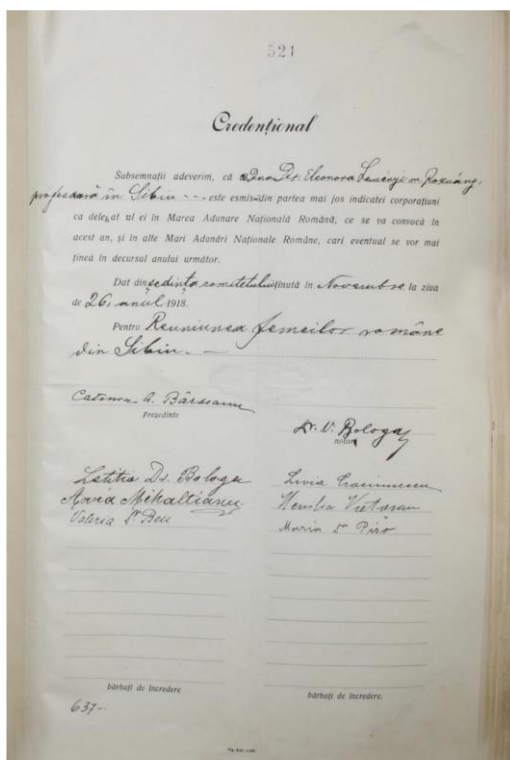 521
Credențional
Subsemnații adeverim, că Dna Eleonora
profesoară în Sibiu --- este esmis din partea mai jos indicatei corporațiuni
ca delegat al ei în Marea Adunare Națională Română, ce se va convocă în
acest an, și în alte Mari Adunări Naționale Române, cari eventual se vor mai
ținea în decursul anului următor.
Dat din ședința comitetului ținută în Novembre la ziua
de 26, anul 1918.
Pentru Reuniunea femeilor române
din Sibiu. —
A. Bârseanu
președinte
Dr. V. Bologa
notar
Letitia Dr. Bologa
Livia
Maria Dr.
Valeria Dr. Beu
bărbați de încredere
bărbați de încredere.
637—